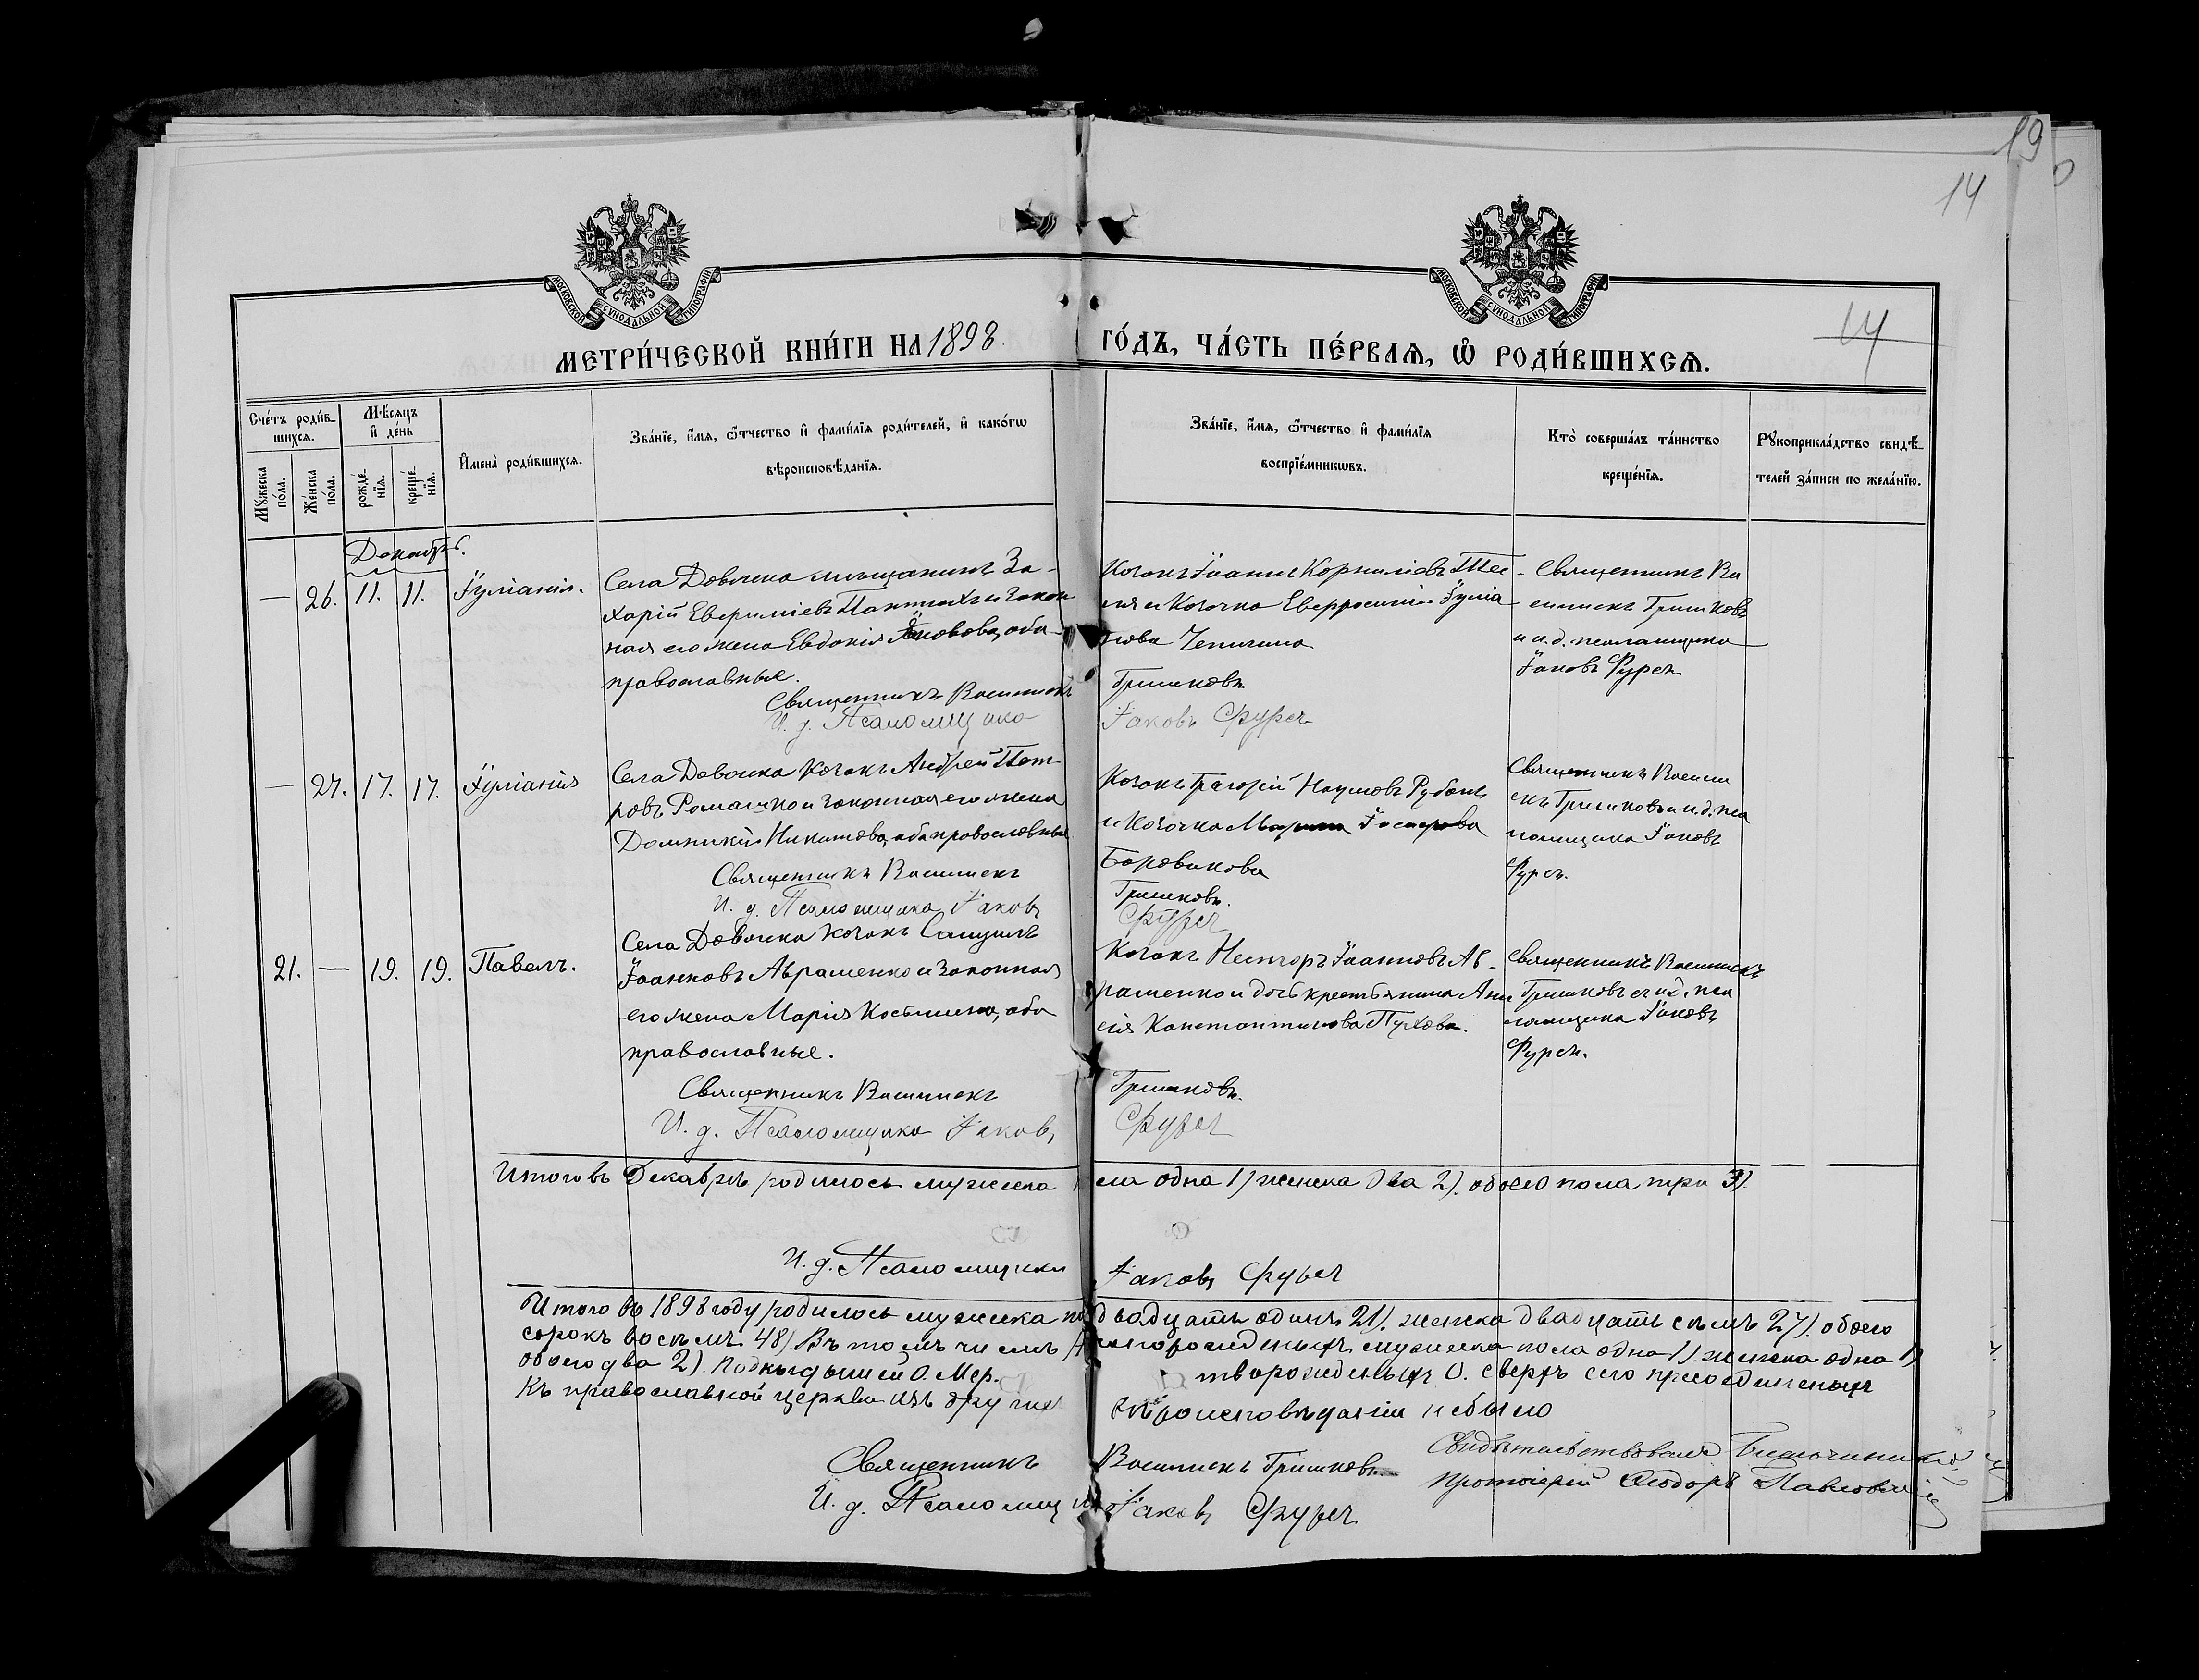 19
14
МОСКОВСКОЙ СѴНОДАЛЬНОЙ ТИПОГРАФІИ
МОСКОВСКОЙ СѴНОДАЛЬНОЙ ТИПОГРАФІИ
14
МЕТРИ́ЧЕСКОЙ КНИ́ГИ НА 1898 ГО́ДЪ, ЧА́СТЬ ПЕ́РВАѦ, Ѽ РОДИ́ВШИХСѦ.
Сче́тъ роди́в-
шихся.
Мѣ́сяцъ
и҆ де́нь
Мꙋ́жеска
по́ла.
Же́нска
по́ла.
рожде́-
нїя.
креще́-
нїя.
И҆мена̀ роди́вшихся.
Зва́нїе, и҆́мя, ѻ҆́тчество и҆ фами́лїя роди́телей, и҆ како́гѡ
вѣроисповѣ́данїя.
Зва́нїе, и҆́мя, ѻ҆́тчество и҆ фами́лїя
воспрїе́мникѡвъ.
Кто̀ соверша́лъ та́инство
креще́нїя.
Рꙋкоприкла́дство свидѣ́-
телей за́писи по жела́нїю.
Декабрь.
— 26. 11. 11. Іуліанія.
Села Довочка мѣщанинъ За-
харій Евѳиміевъ и закон
ная его жена Евдокія Яковова, оба
православные.
Священникъ Василискъ
И. д. Псаломщика
Козакъ Іоаннъ Корниліевъ
и Козачка Евфросинія Іуліа
нова Чепигина.
Гришковъ
Іаковъ Фурсъ
Священникъ Ва
силискъ Гришковъ
и и. д. псаломщика
Іаковъ Фурсъ.
— 27. 17. 17. Іуліанія
Села Довочка Козакъ Андрей Пет-
ровъ Ромашко и законная его жена
Домникія Никитова, оба православные
Священникъ Василискъ
И. д. Псаломщика Іаковъ
Козакъ Григорій Наумовъ Рубанъ
и Козачка
Боровикова
Гришковъ.
Фурсъ
Священникъ Васили
скъ Гришковъ и и. д. пса
ломщика Іаковъ
Фурсъ.
21. — 19. 19. Павелъ.
Села Довочка Козакъ Самуилъ
Іоанновъ Авраменко и законная
его жена Марія Косьмина, оба
православные.
Священникъ Василискъ
И. д. Псаломщика Іаковъ
Козакъ Несторъ Іоанновъ Ав-
раменко и дочь крестьянина Ани
сія Константинова Пухова.
Гришковъ.
Фурсъ
Священникъ Василискъ
Гришковъ и и. д. пса
ломщика Іаковъ
Фурсъ.
Итого въ Декабрѣ родилось мужеска пола одна 1) женска два 2). обоего пола три 3).
И. д. Псаломщика Іаковъ Фурсъ
Итого въ 1898 году родилось мужеска пол двадцать одинъ 21). женска двадцать семь 27). обоего
сорокъ восемь 48) Въ томъ числѣ мужеска пола одна 1). женска одна 1)
обоего два 2). Подкидышей 0. Мертворожденныхъ 0. сверхъ сего присоединеныхъ
Къ православной церкви изъ другихъ вѣроисповѣданій небыло
Священникъ Василискъ Гришковъ
И. д. Псаломщика Іаковъ Фурсъ
Свидѣтельствовалъ Благочинный
Протоіерей Ѳеодоръ Павловскій